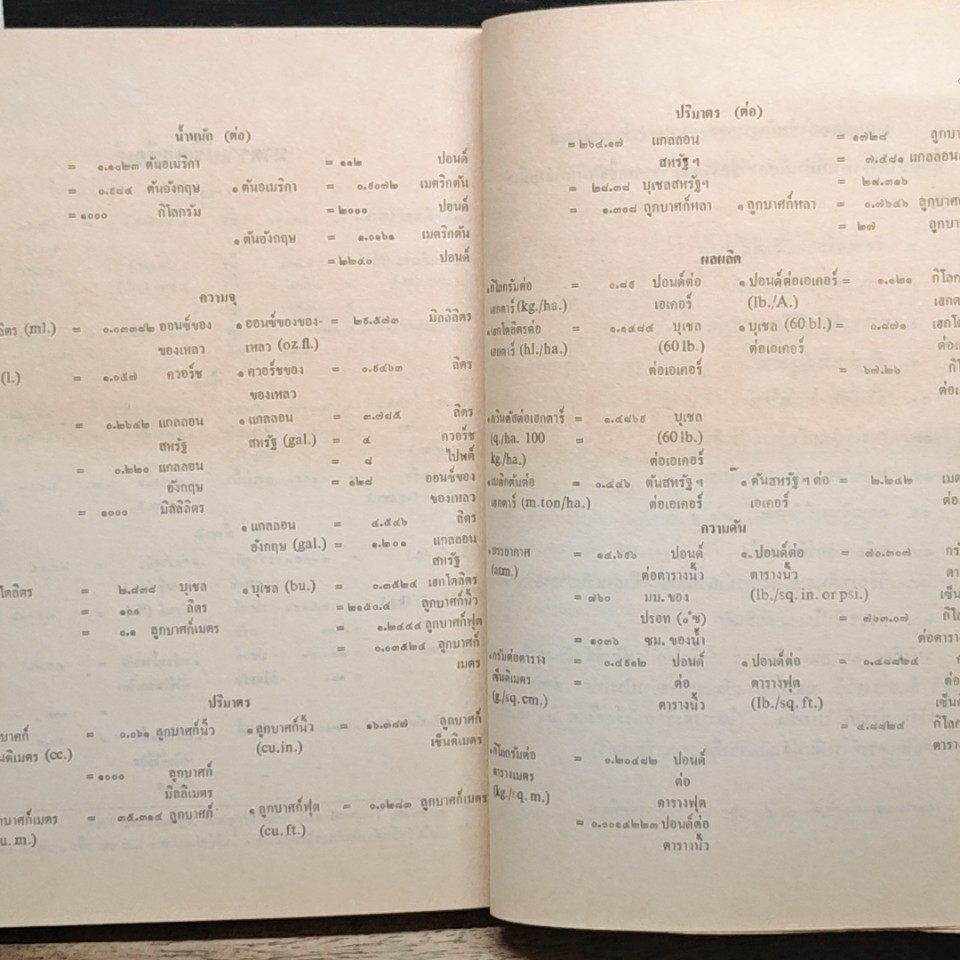 น้ำหนัก (ต่อ)
= ๑.๑๐๒๓ ตันอเมริกา = ๑๑๒ ปอนด์
= ๐.๙๘๔ ตันอังกฤษ ๑ ตันอเมริกา = ๐.๙๐๗๒ เมตริกตัน
= ๑๐๐๐ กิโลกรัม = ๒๐๐๐ ปอนด์
๑ ตันอังกฤษ = ๑.๐๑๖๑ เมตริกตัน
= ๒๒๔๐ ปอนด์
ความจุ
ลิตร (ml.) = ๐.๐๓๓๘๒ ออนซ์ของ ๑ ออนซ์ของของ- = ๒๙.๕๗๓ มิลลิลิตร
ของเหลว เหลว (oz.fl.)
(l.) = ๑.๐๕๗ ควอร์ช ๑ ควอร์ชของ = ๐.๙๔๖๓ ลิตร
ของเหลว
= ๐.๒๖๔๒ แกลลอน ๑ แกลลอน = ๓.๗๘๕ ลิตร
สหรัฐ สหรัฐ (gal.) = ๔ ควอร์ช
= ๐.๒๒๐ แกลลอน = ๘ ไปพต์
อังกฤษ = ๑๒๘ ออนซ์ของ
= ๑๐๐๐ มิลลิลิตร ของเหลว
๑ แกลลอน = ๔.๕๔๖ ลิตร
อังกฤษ (gal.) = ๑.๒๐๑ แกลลอน
สหรัฐ
โตลิตร = ๒.๘๓๘ บุเชล ๑ บุเชล (bu.) = ๐.๓๕๒๔ เฮกโตลิตร
= ๑๐๐ ลิตร = ๒๑๕๐.๔ ลูกบาศก์นิ้ว
= ๐.๑ ลูกบาศก์เมตร = ๑.๒๔๔๔ ลูกบาศก์ฟุต
= ๐.๐๓๕๒๔ ลูกบาศก์
เมตร
ปริมาตร
บาศก์ = ๐.๐๖๑ ลูกบาศก์นิ้ว ๑ ลูกบาศก์นิ้ว = ๑๖.๓๘๗ ลูกบาศก์
นติเมตร (cc.) (cu.in.) เซ็นติเมตร
= ๑๐๐๐ ลูกบาศก์
มิลลิเมตร
บาศก์เมตร = ๓๕.๓๑๔ ลูกบาศก์ ๑ ลูกบาศก์ฟุต = ๐.๐๒๘๓ ลูกบาศก์เมตร
u. m.) (cu. ft.)
ปริมาตร (ต่อ)
= ๒๖๔.๑๗ แกลลอน = ๑๗๒๘ ลูกบ
สหรัฐฯ = ๗.๔๘๑ แกลลอน
= ๒๘.๓๘ บุเชลสหรัฐฯ = ๒๘.๓๑๖
= ๑.๓๐๘ ลูกบาศก์หลา ๑ ลูกบาศก์หลา = ๐.๗๖๔๖ ลูกบาศก
= ๒๗ ลูกบา
ผลผลิต
๑ กิโลกรัมต่อ = ๐.๘๙ ปอนด์ต่อ ๑ ปอนด์ต่อเอเคอร์ = ๑.๑๒๑ กิโลก
เฮกตาร์ (kg./ha.) เอเคอร์ (lb./A.) เฮกต
๑ เฮกโตลิตรต่อ = ๑.๑๔๘๔ บุเชล ๑ บุเชล (60 bl.) = ๐.๘๗๑ เฮกโต
เฮกตาร์ (hl./ha.) (60 lb.) ต่อเอเคอร์ ต่อเ
ต่อเอเคอร์ = ๖๗.๒๖ กิโ
ต่อเ
๑ ควินตัลต่อเฮกตาร์ = ๑.๔๘๖๙ บุเชล
(q./ha. 100 = (60 lb.)
kg./ha.) ต่อเอเคอร์
๑ เมตริกตันต่อ = ๐.๔๔๖ ตันสหรัฐฯ ๑ ตันสหรัฐฯ ต่อ = ๒.๒๔๒ เมต
เฮกตาร์ (m.ton/ha.) ต่อเอเคอร์ เอเคอร์ ต่อ
ความดัน
๑ บรรยากาศ = ๑๔.๖๙๖ ปอนด์ ๑. ปอนด์ต่อ = ๗๐.๓๐๗ กรั
(atm.) ต่อตารางนิ้ว ตารางนิ้ว ตา
= ๗๖๐ มม. ของ (lb./sq. in. or psi.) เซ็น
ปรอท (๐°ซ) = ๗๐๓.๐๗ กิโ
= ๑๐๓๖ ซม. ของน้ำ ต่อตาราง
๑ กรัมต่อตาราง = ๐.๔๙๑๒ ปอนด์ ๑ ปอนด์ต่อ = ๐.๔๘๘๒๔
เซ็นติเมตร = ต่อ ตารางฟุต ต่อ
(g./sq. cm.) ตารางนิ้ว (Ib./sq. ft.) เซ็นต
= ๔.๘๘๒๔ กิโล
๑ กิโลกรัมต่อ = ๐.๒๐๔๘๒ ปอนด์ ตาราง
ตารางเมตร ต่อ
(kg./sq. m.) ตารางฟุต
= ๐.๐๐๑๔๒๒๓ ปอนด์ต่อ
ตารางนิ้ว